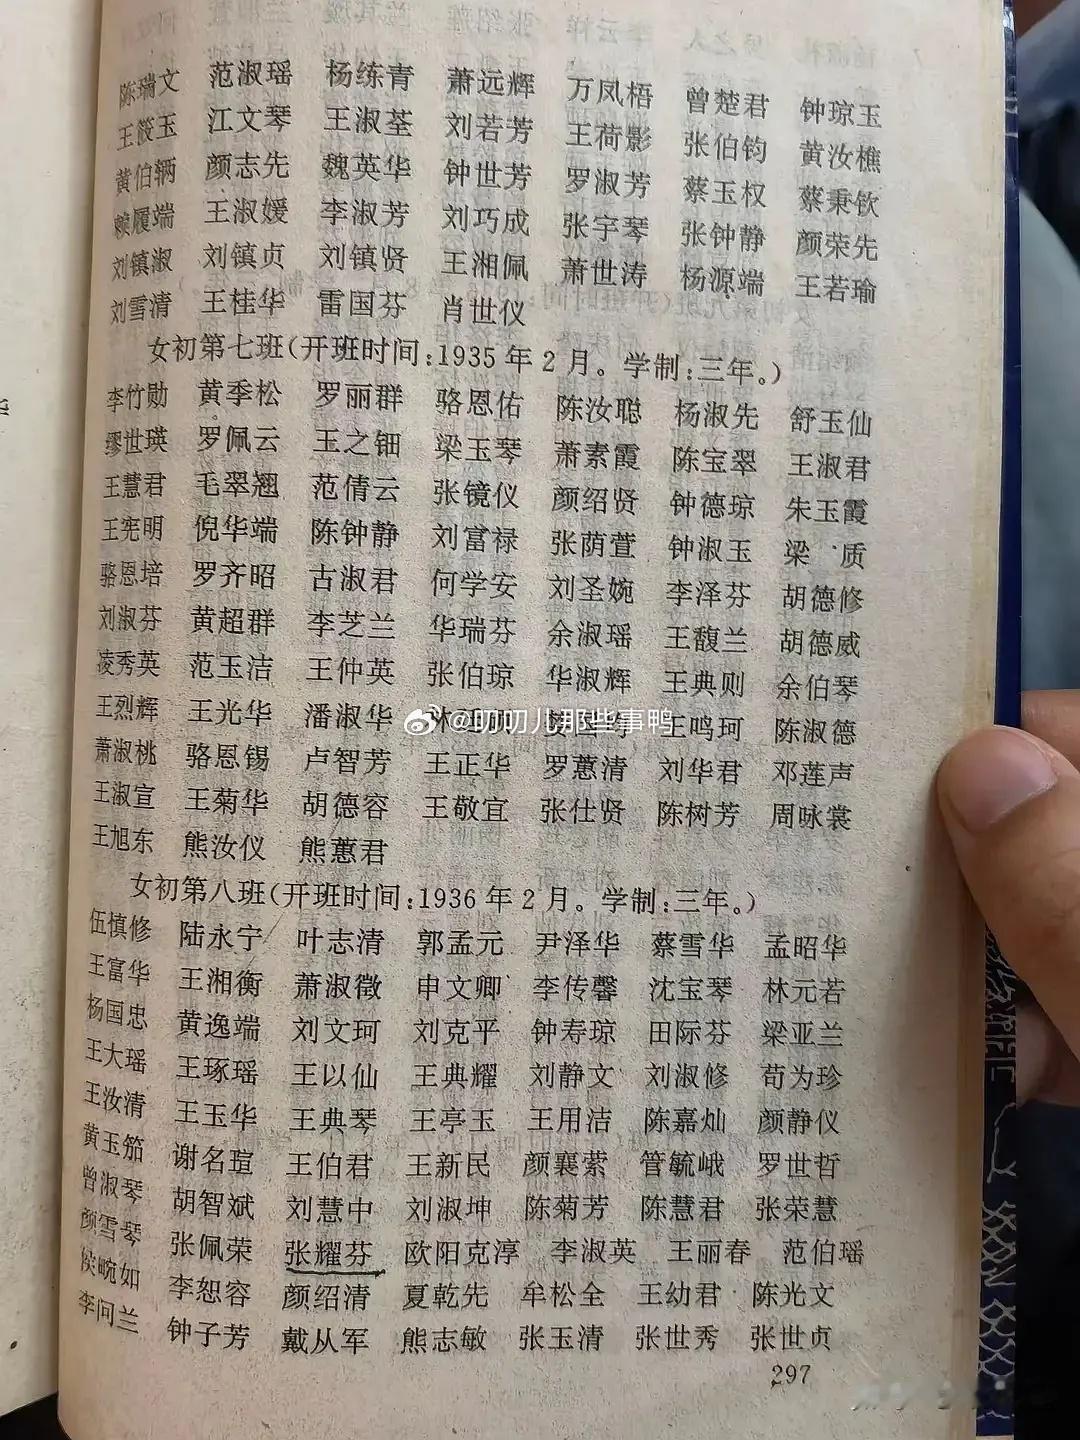 陈瑞文 范淑瑶 杨练青 萧远辉 万凤梧 曾楚君 钟琼玉
王筱玉 江文琴 王淑荃 刘若芳 王荷影 张伯钧 黄汝樵
黄伯辆 颜志先 魏英华 钟世芳 罗淑芳 蔡玉权 蔡秉钦
赖履端 王淑媛 李淑芳 刘巧成 张宇琴 张钟静 颜荣先
刘镇淑 刘镇贞 刘镇贤 王湘佩 萧世涛 杨源端 王若瑜
刘雪清 王桂华 雷国芬 肖世仪
女初第七班(开班时间:1935年2月。学制:三年。)
李竹勋 黄季松 罗丽群 骆恩佑 陈汝聪 杨淑先 舒玉仙
缪世瑛 罗佩云 王之钿 梁玉琴 萧素霞 陈宝翠 王淑君
王慧君 毛翠翘 范倩云 张镜仪 颜绍贤 钟德琼 朱玉霞
王宪明 倪华端 陈钟静 刘富禄 张荫萱 钟淑玉 梁 质
骆恩培 罗齐昭 古淑君 何学安 刘圣婉 李泽芬 胡德修
刘淑芬 黄超群 李芝兰 华瑞芬 余淑瑶 王馥兰 胡德威
凌秀英 范玉洁 王仲英 张伯琼 华淑辉 王典则 余伯琴
王烈辉 王光华 潘淑华 王鸣珂 陈淑德
萧淑桃 骆恩锡 卢智芳 王正华 罗蕙清 刘华君 邓莲声
王淑宣 王菊华 胡德容 王敬宜 张仕贤 陈树芳 周咏裳
王旭东 熊汝仪 熊蕙君
女初第八班(开班时间:1936年2月。学制:三年。)
伍慎修 陆永宁 叶志清 郭孟元 尹泽华 蔡雪华 孟昭华
王富华 王湘衡 萧淑徵 申文卿 李传馨 沈宝琴 林元若
杨国忠 黄逸端 刘文珂 刘克平 钟寿琼 田际芬 梁亚兰
王大瑶 王琢瑶 王以仙 王典耀 刘静文 刘淑修 苟为珍
王汝清 王玉华 王典琴 王亭玉 王用洁 陈嘉灿 颜静仪
黄玉笳 谢名瑄 王伯君 王新民 颜襄萦 管毓峨 罗世哲
曾淑琴 胡智斌 刘慧中 刘淑坤 陈菊芳 陈慧君 张荣慧
颜雪琴 张佩荣 张耀芬 欧阳克淳 李淑英 王丽春 范伯瑶
侯畹如 李恕容 颜绍清 夏乾先 牟松全 王幼君 陈光文
李问兰 钟子芳 戴从军 熊志敏 张玉清 张世秀 张世贞
297
@叨叨儿那些事鸭